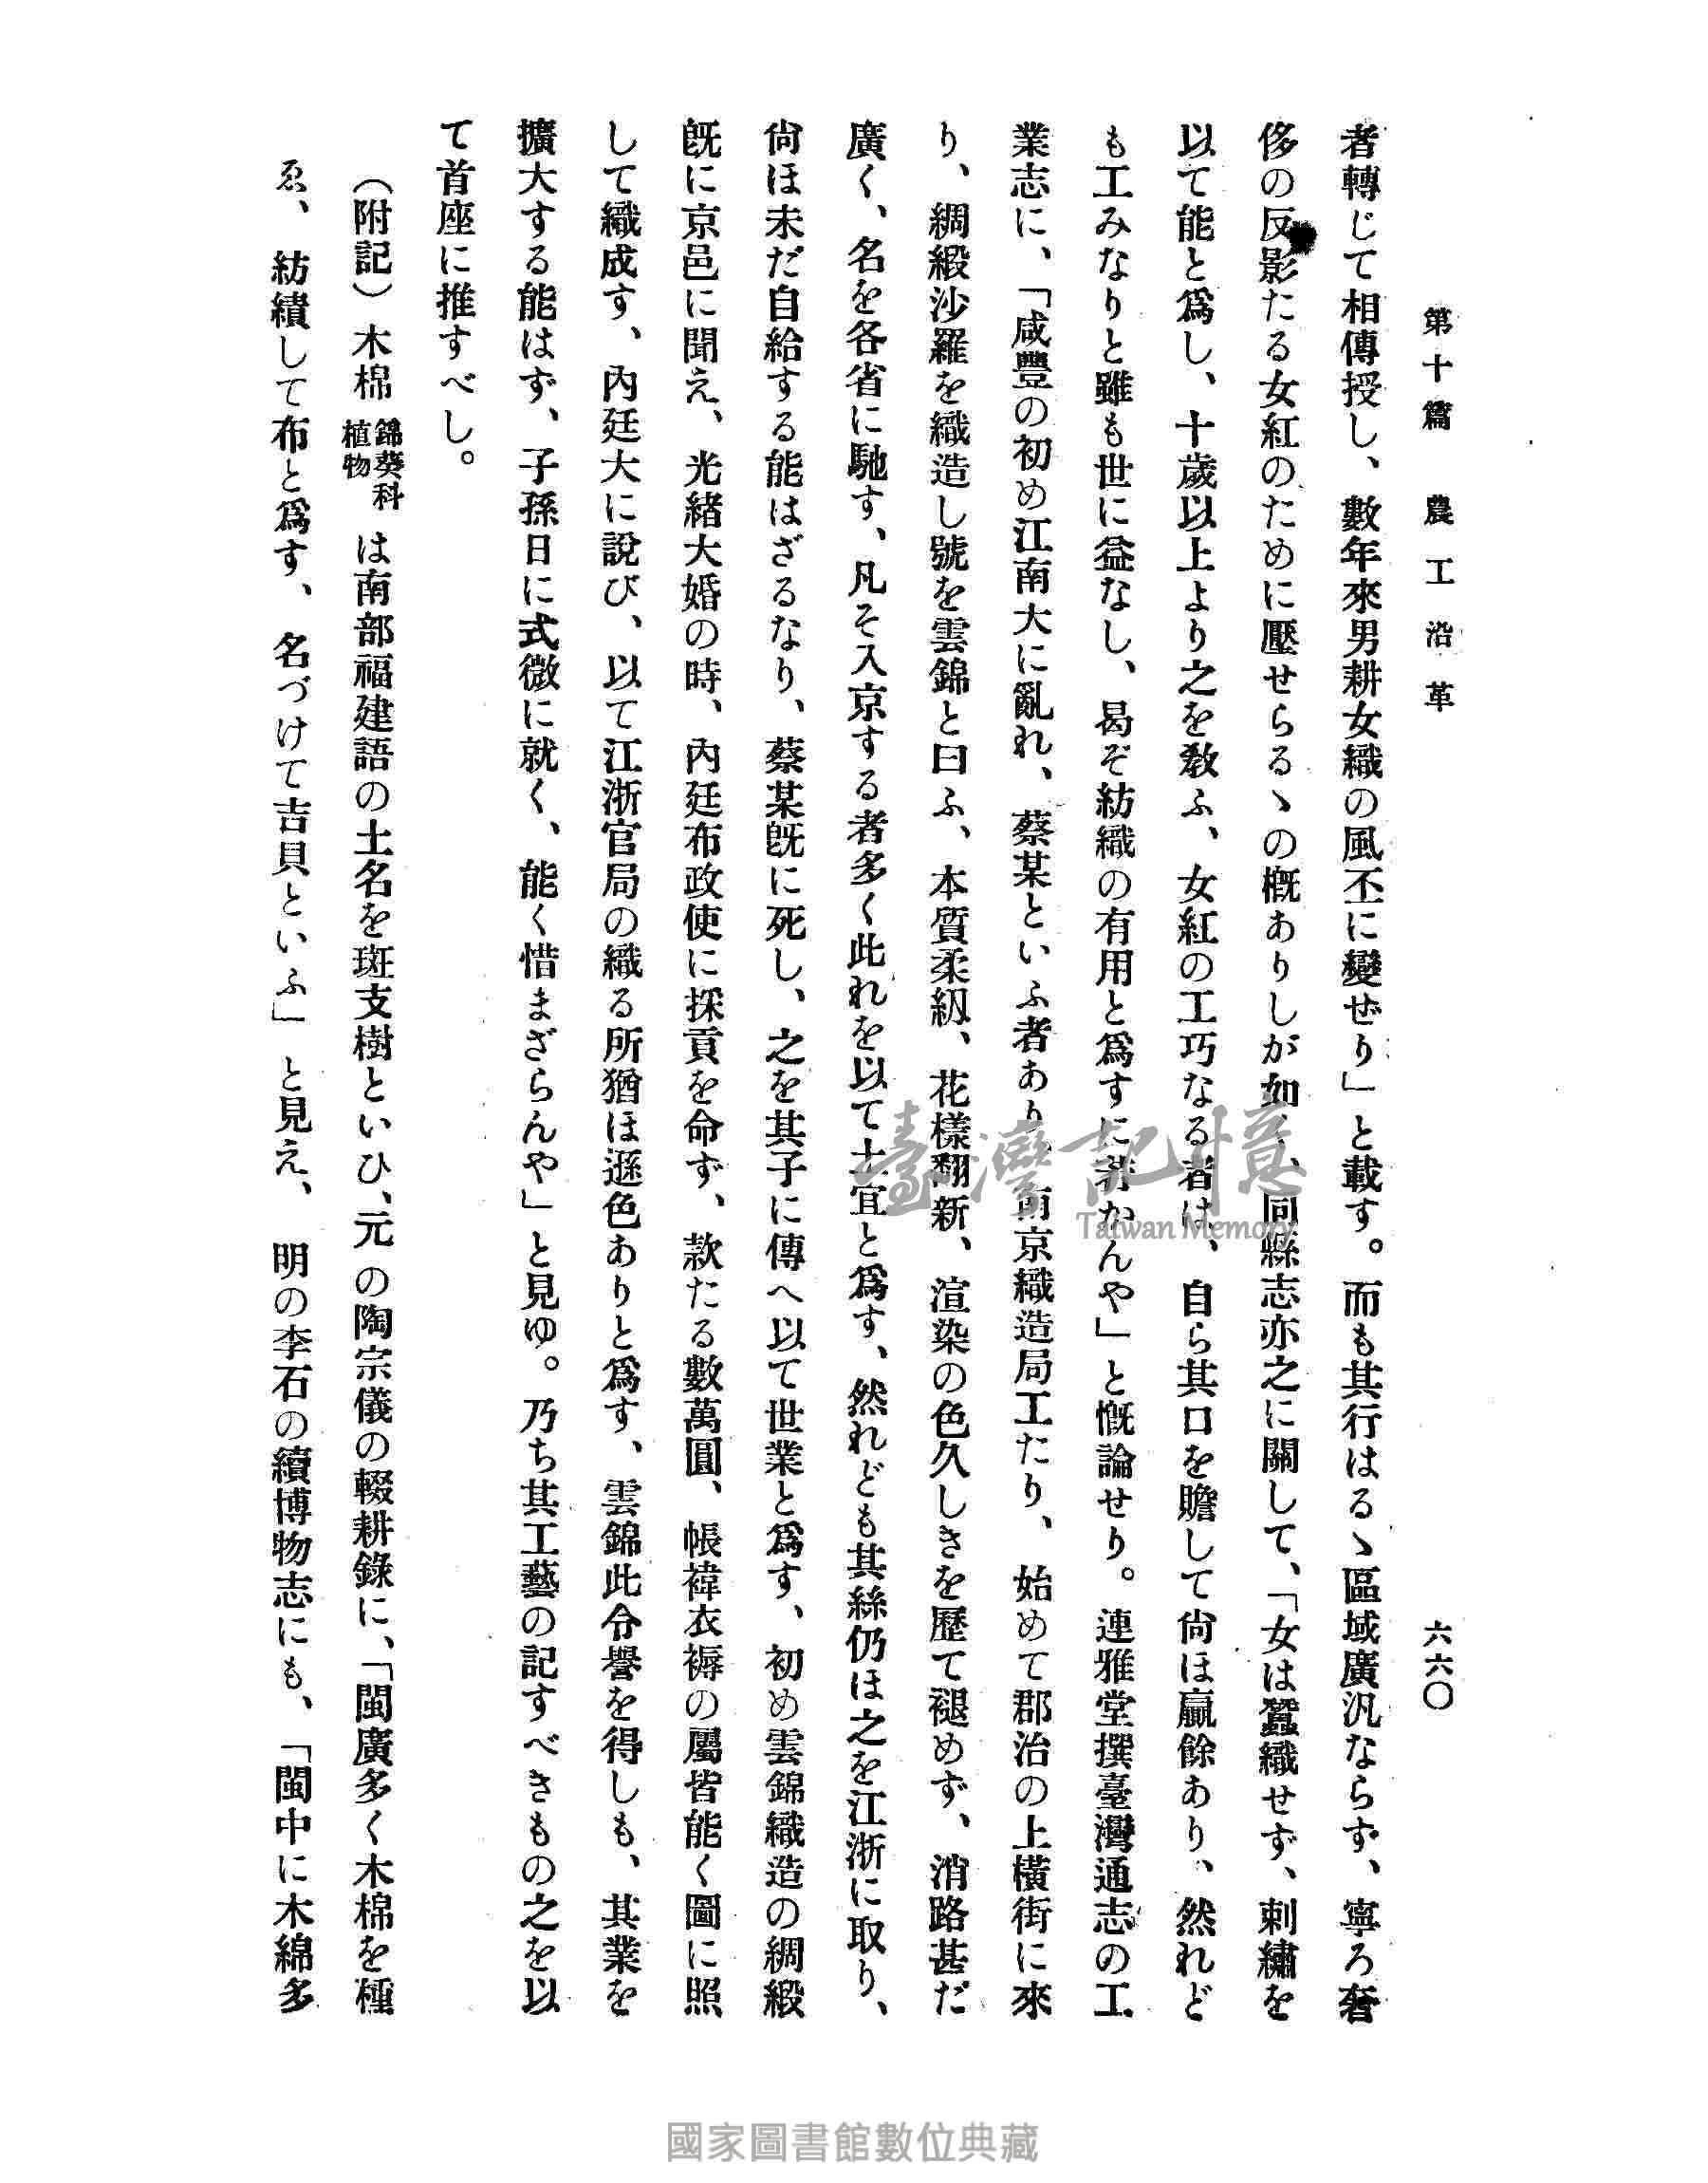 第十篇 農工沿革 六六〇
者轉じて相傳授し、數年來男耕女織の風丕に變ぜり」と載す。而も其行はるゝ區域廣汎ならず、寧ろ奢
侈の反影たる女紅のために壓せらるゝの概ありしが如く、同縣志亦之に關して、「女は蠶織せず、刺繡を
以て能と爲し、十歲以上より之を教ふ、女紅の工巧なる者は、自ら其口を贍して尙ほ贏餘あり、然れど
も工みなりと雖も世に益なし、曷ぞ紡織の有用と爲すに若かんや」と慨論せり。連雅堂撰臺灣通志の工
業志に、「咸豐の初め江南大に亂れ、蔡某といふ者あり、南京織造局工たり、始めて郡治の上橫街に來
り、綢緞沙羅を織造し號を雲錦と曰ふ、本質柔紉、花樣翻新、渲染の色久しきを歷て褪めず、消路甚だ
廣く、名を各省に馳す、凡そ入京する者多く此れを以て土宜と爲す、然れども其絲仍ほ之を江浙に取り、
尙ほ未だ自給する能はざるなり、蔡某旣に死し、之を其子に傳へ以て世業と爲す、初め雲錦織造の綢緞
旣に京邑に聞え、光緒大婚の時、內廷布政使に採貢を命ず、款たる數萬圓、帳褘衣褥の屬皆能く圖に照
して織成す、內廷大に說び、以て江浙官局の織る所猶ほ遜色ありと爲す、雲錦此令譽を得しも、其業を
擴大する能はず、子孫日に式微に就く、能く惜まざらんや」と見ゆ。乃ち其工藝の記すべきもの之を以
て首座に推すべし。
（附記）木棉 錦葵科植物 は南部福建語の土名を斑支樹といひ、元の陶宗儀の輟耕錄に、「閩廣多く木棉を種
ゑ、紡績して布と爲す、名づけて吉貝といふ」と見え、明の李石の續博物志にも、「閩中に木綿多
臺灣記憶
Taiwan Memory
國家圖書館數位典藏